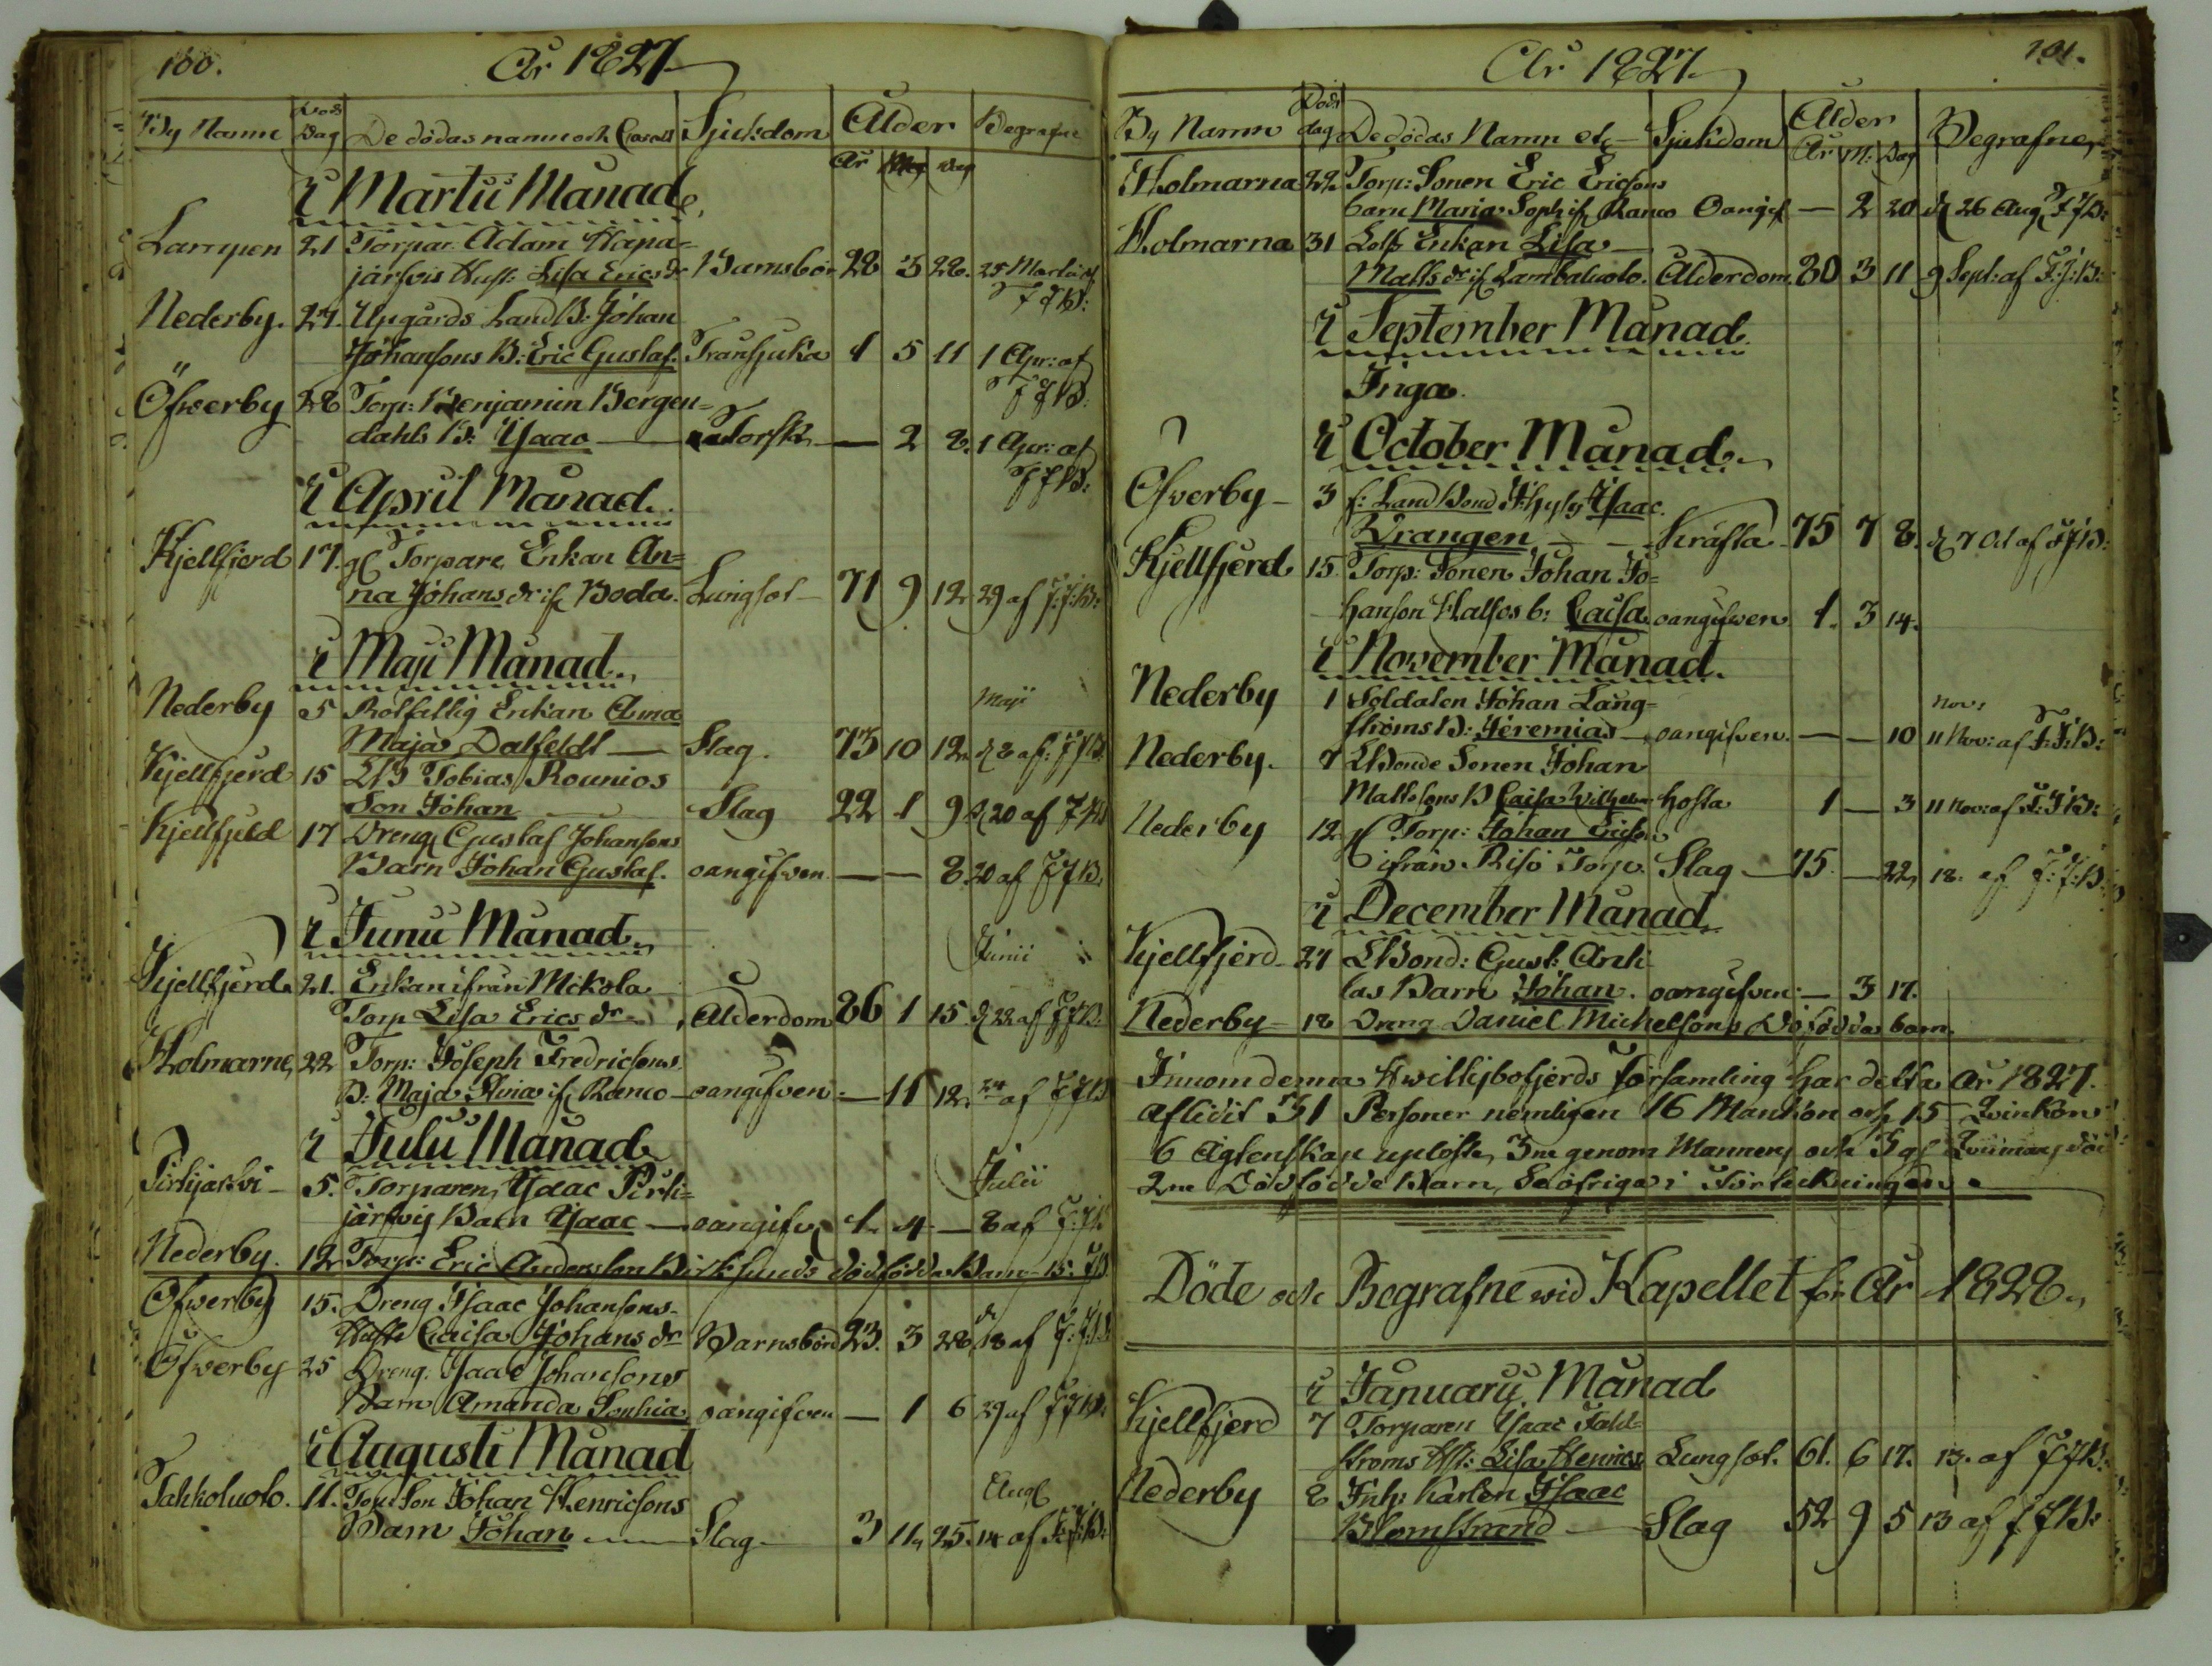 100.
År 1827
By Namn Död Dag De dödas namn och Sjukdom Ålder Begrafne
År Dag
i Martii Månad
Lampen 21 Torpar. Adam Hapa=
järfvis Hust: Lisa Erics dr Barnsbör 28 3 28. 25 Martii af
F J B:
Nederby. 27. Upgårds Land B: Johan
Johansons B: Eric Gustaf. Transjuka 1 5 11 1 Apr: af
F J B:
Öfwerby 28 Torp: Benjamin Bergen=
dahls B: Ysaac — Torsk — 2 8. 1 Apr: af
F J B:
i April Månad.
Kjellfjerd 17. gl Torpare Enkan An=
na Johans dr if. Boda. Lungsot — 71 9 12 29 af F: J: B:
i Maji Månad.
Nederby 5 Rotfallig Enkan Anna Maji
Maja Dalfeldt — Slag. 73 10 12 d 8 af: F J B.
Kjellfjerd 15 LB Tobias Rounios
Son Johan Slag 22 1 9 d 20 af F J B
Kjellfjeld 17 Dreng Gustaf Johansons
Barn Johan Gustaf. oangifven. — — 8. 20 af F J B.
i Junii Månad. Junii
Kjellfjerd 21. Enkan ifrån Mickola
Torp Lisa Erics dr Ålderdom 86 1 15. d 22 af F J B:
Holmarne, 22 Torp: Joseph Fredricsons
B: Maja Stina if. Ranco — oangifven — 11 12 24 af F J B
i Julii Månad Julii
Pirtijärfvi — 5. Torparen, Ysaac Pirti=
järfvis Barn Ysaac — oangifv. 1. 4. — 8 af F: J B
Nederby. 12 Torp: Eric Anderson Birklunds dödfödda Barn 15. F B
Öfwerby 15. Dreng Isaac Johansons
Hustr Caisa Johans dr Barnsbörd 23. 3 28 d 18 af F: J: B
Öfwerby 25 Dreng. Ysaac Johansons
Barn Amanda Sophia oangifven — 1 6 29 af F J B:
i Augusti Månad
Tahkoluoto. 11. Torp Son Johan Henricsons Aug
Barn Johan — Slag — 3 11 25. 14 af F: J: B:
101.
År 1827
By Namn Döds dag De dödas Namn etc — Sjukdom Ålder Begrafne
År M: Dag
Holmarna 22. Torp: Sonen Eric Ericsons
barn Maria Soph if. Ranco Oangif — 2 20 d 26 Aug F J B:
Holmarna 31 Enkan Lisa —
Matts dr if. Lambaluoto. Ålderdom. 80 3 11 9 Sept: af F: J: B:
i September Månad.
Inga.
i October Månad.
Öfwerby — 3 f: Land Bond Ysaac
Drangen — Kräfta 75 7 8. d 7 Oct af F J B:
Kjellfjerd 15. Torp: Sonen Johan Jo=
hanson Halsos b: Caisa oangifwen 1. 3 14.
i November Månad.
Nederby 1 Soldaten Johan Lång= Nov:
ströms B: Jeremias — oangifven. — — 10 11 Nov: af F: J: B:
Nederby. 7 LBonde Sonen Johan
Mattssons B Caisa Wilhelm hosta 1 — 3 11 Nov: af F: J B:
Nederby 12 gl Torp: Johan Ericson
ifrån Risö Torp. Slag — 75. — 22, 18. af F: J: B:
i December Månad
Kjellfjerd 27 LBond: Gust: Anti
las Barn Johan. oangifven. — 3 17.
Nederby — 18 Dreng Daniel Michelsons Dödfödda barn.
Innom denna Hwittisbofjerds Församling har detta År 1827.
aflidit 31 Personer nemligen 16 Mankön och 15 Qvinkön
6 Ägtenskap uplöste, 3ne genom Mannens och 3 gl Qvinnans död
2ne Dödfödde Barn, Se öfriga i Förteckningen.
Döde och Begrafne wid Kapellet för År 1828.
i Januarii Månad
Kjellfjerd 7 Torparen Ysaac Fald=
stroms Hst: Lisa Henrics Lungsot. 61. 6 17. 13. af F J B:
Nederby 8 Inh: Karlen Isaac
Blomstrand — Slag 52 9 5 13 af F J B: